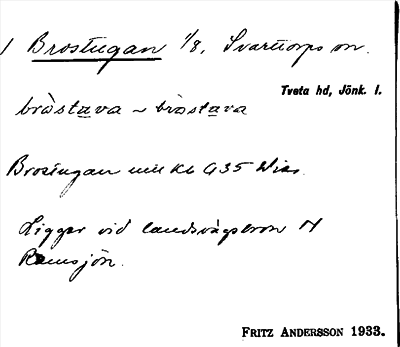 1 Brostugan 1/8, Svarttorps sn.
Tveta hd, Jönk. l.
bròstava ~ bròstava
Brostugan
Ligger vid landsvägsbron N
Ramsjön.
FRITZ ANDERSSON 1933.